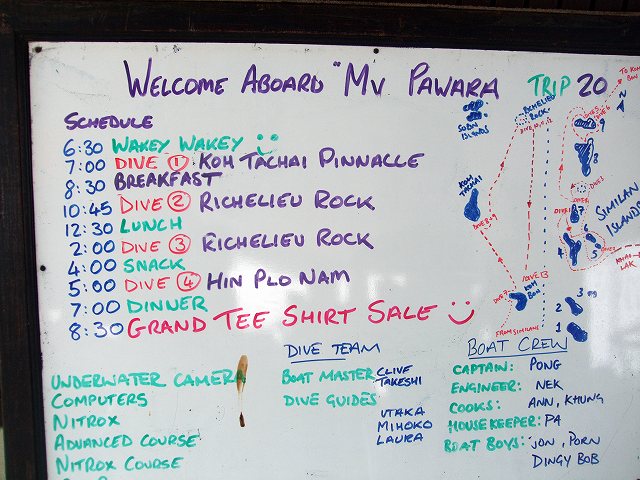 WELCOME ABOARD "MV PAWARA TRIP 20
SCHEDULE
6:30 WAKEY WAKEY
7:00 DIVE 1 KOH TACHAI PINNACLE
8:30 BREAKFAST
10:45 DIVE 2 RICHELIEU ROCK
12:30 LUNCH
2:00 DIVE 3 RICHELIEU ROCK
4:00 SNACK
5:00 DIVE 4 HIN PLO NAM
7:00 DINNER
8:30 GRAND TEE SHIRT SALE
UNDERWATER CAMERA
COMPUTERS
NITROX
ADVANCED COURSE
NITROX COURSE
DIVE TEAM
BOAT MASTER CLIVE
TAKESHI
DIVE GUIDES
UTAKA
MIHOKO
LAURA
BOAT CREW
CAPTAIN: PONG
ENGINEER: NEK
COOKS: ANN, KHUNG
HOUSEKEEPER: PA
BOAT BOYS: JON, PORN
DINGY BOB
SURIN
ISLANDS
RICHELIEU
ROCK
KOH
TACHAI
KOH
BON
FROM SIMILANS
SIMILAN
ISLANDS
TO KOH
BON
N
9
8
7
6
5
4
3
2
1